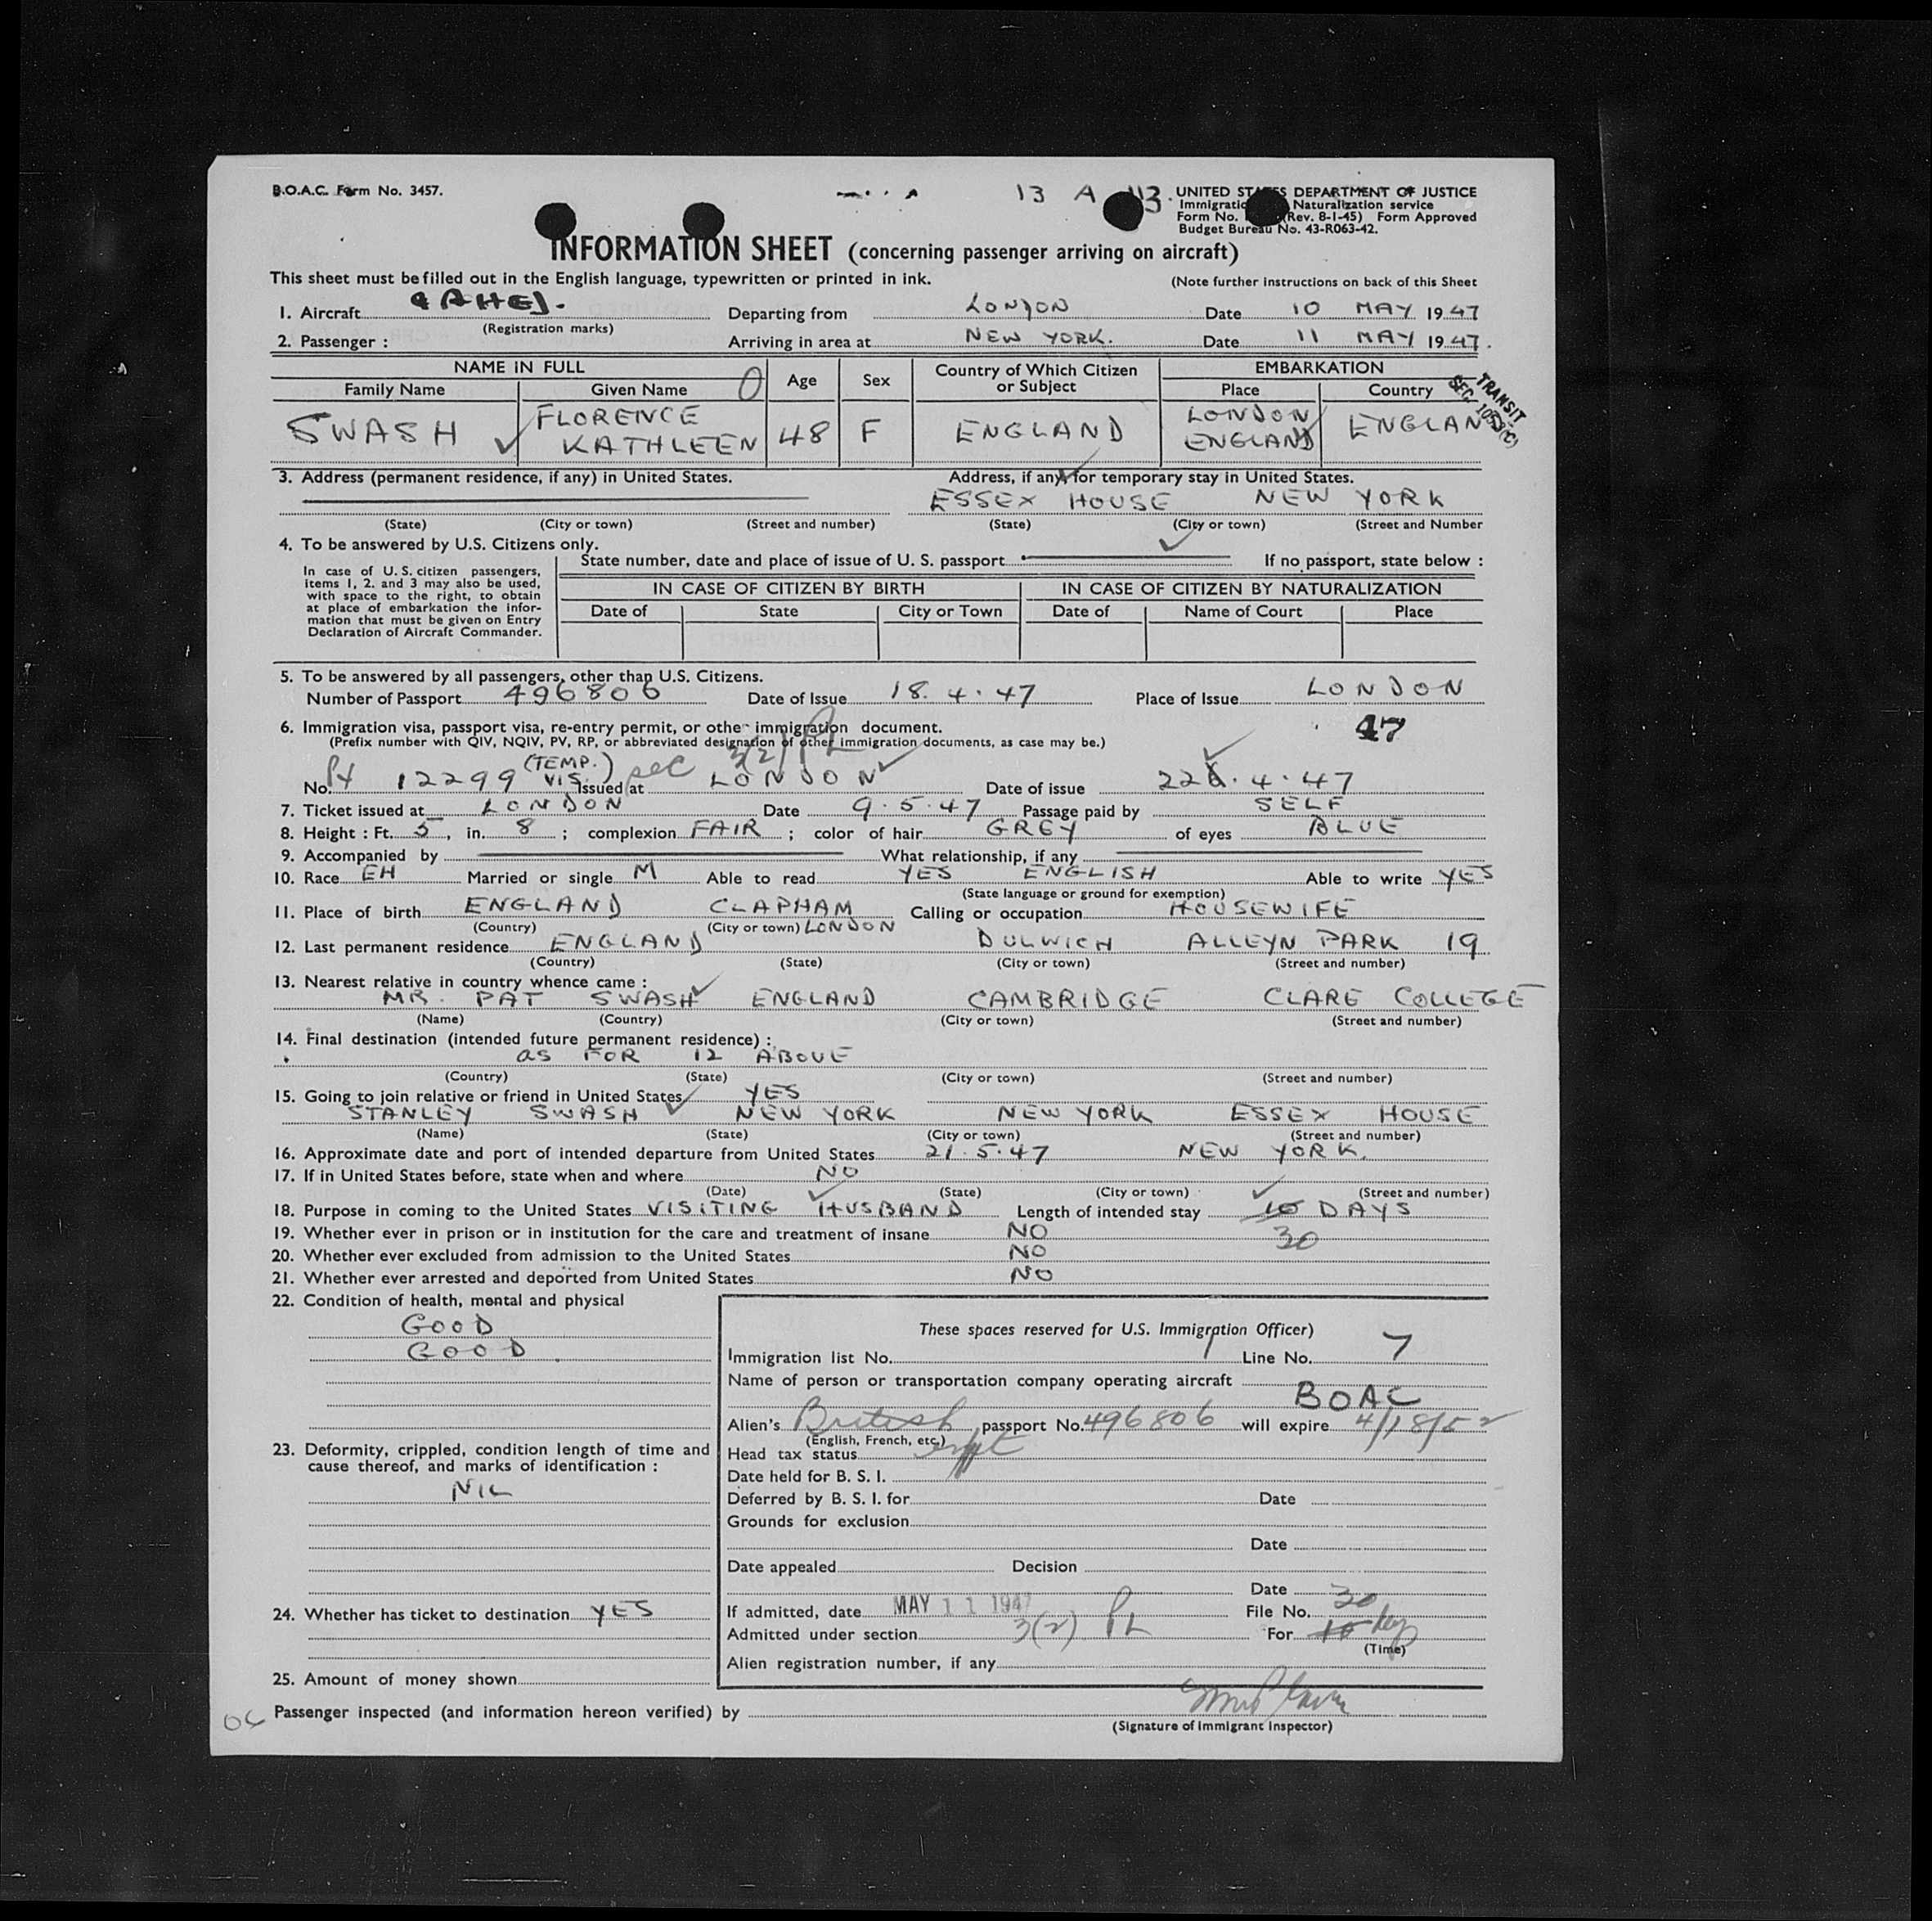 B.O.A.C. Form No. 3457.
13 A 43.
UNITED STATES DEPARTMENT OF JUSTICE
Immigration Naturalization service
Form No. (Rev. 8-1-45) Form Approved
Budget Bureau No. 43-R063-42.
INFORMATION SHEET (concerning passenger arriving on aircraft)
This sheet must be filled out in the English language, typewritten or printed in ink. (Note further instructions on back of this Sheet
1. Aircraft GAHEJ. Departing from LONDON Date 10 MAY 1947
(Registration marks)
2. Passenger : Arriving in area at NEW YORK. Date 11 MAY 1947.
NAME IN FULL Age Sex Country of Which Citizen or Subject EMBARKATION
Family Name Given Name Place Country
TRANSIT
SWASH FLORENCE KATHLEEN 48 F ENGLAND LONDON ENGLAND ENGLAND
3. Address (permanent residence, if any) in United States. Address, if any, for temporary stay in United States.
ESSEX HOUSE NEW YORK
(State) (City or town) (Street and number) (State) (City or town) (Street and Number
4. To be answered by U.S. Citizens only.
State number, date and place of issue of U. S. passport If no passport, state below :
In case of U. S. citizen passengers,
items 1, 2. and 3 may also be used,
with space to the right, to obtain
at place of embarkation the infor-
mation that must be given on Entry
Declaration of Aircraft Commander.
IN CASE OF CITIZEN BY BIRTH IN CASE OF CITIZEN BY NATURALIZATION
Date of State City or Town Date of Name of Court Place
5. To be answered by all passengers, other than U.S. Citizens.
Number of Passport 496806 Date of Issue 18.4.47 Place of Issue LONDON
6. Immigration visa, passport visa, re-entry permit, or other immigration document. 47
(Prefix number with QIV, NQIV, PV, RP, or abbreviated designation of other immigration documents, as case may be.)
3(2) PL
No. PV 12299 (TEMP.) VIS. sec Issued at LONDON Date of issue 22.4.47
7. Ticket issued at LONDON Date 9.5.47 Passage paid by SELF
8. Height : Ft. 5, in. 8 ; complexion FAIR ; color of hair GREY of eyes BLUE
9. Accompanied by What relationship, if any
10. Race EH Married or single M Able to read YES ENGLISH Able to write YES
(State language or ground for exemption)
11. Place of birth ENGLAND CLAPHAM Calling or occupation HOUSEWIFE
(Country) (City or town) LONDON
12. Last permanent residence ENGLAND DULWICH ALLEYN PARK 19
(Country) (State) (City or town) (Street and number)
13. Nearest relative in country whence came :
MR. PAT SWASH ENGLAND CAMBRIDGE CLARE COLLEGE
(Name) (Country) (City or town) (Street and number)
14. Final destination (intended future permanent residence) :
as FOR 12 ABOVE
(Country) (State) (City or town) (Street and number)
15. Going to join relative or friend in United States YES
STANLEY SWASH NEW YORK NEW YORK ESSEX HOUSE
(Name) (State) (City or town) (Street and number)
16. Approximate date and port of intended departure from United States 21.5.47 NEW YORK.
17. If in United States before, state when and where NO
(Date) (State) (City or town) (Street and number)
18. Purpose in coming to the United States VISITING HUSBAND Length of intended stay 10 DAYS
30
19. Whether ever in prison or in institution for the care and treatment of insane NO
20. Whether ever excluded from admission to the United States NO
21. Whether ever arrested and deported from United States NO
22. Condition of health, mental and physical
GOOD
GOOD
23. Deformity, crippled, condition length of time and
cause thereof, and marks of identification :
NIL
24. Whether has ticket to destination YES
25. Amount of money shown
These spaces reserved for U.S. Immigration Officer)
Immigration list No. 1 Line No. 7
Name of person or transportation company operating aircraft
BOAC
Alien's British passport No. 496806 will expire 4/18/52
(English, French, etc.)
Head tax status
Date held for B. S. I.
Deferred by B. S. I. for Date
Grounds for exclusion
Date
Date appealed Decision
Date
If admitted, date MAY 11 1947 File No. 30
Admitted under section 3(2) PL For 10 days
(Time)
Alien registration number, if any
Passenger inspected (and information hereon verified) by
(Signature of Immigrant Inspector)